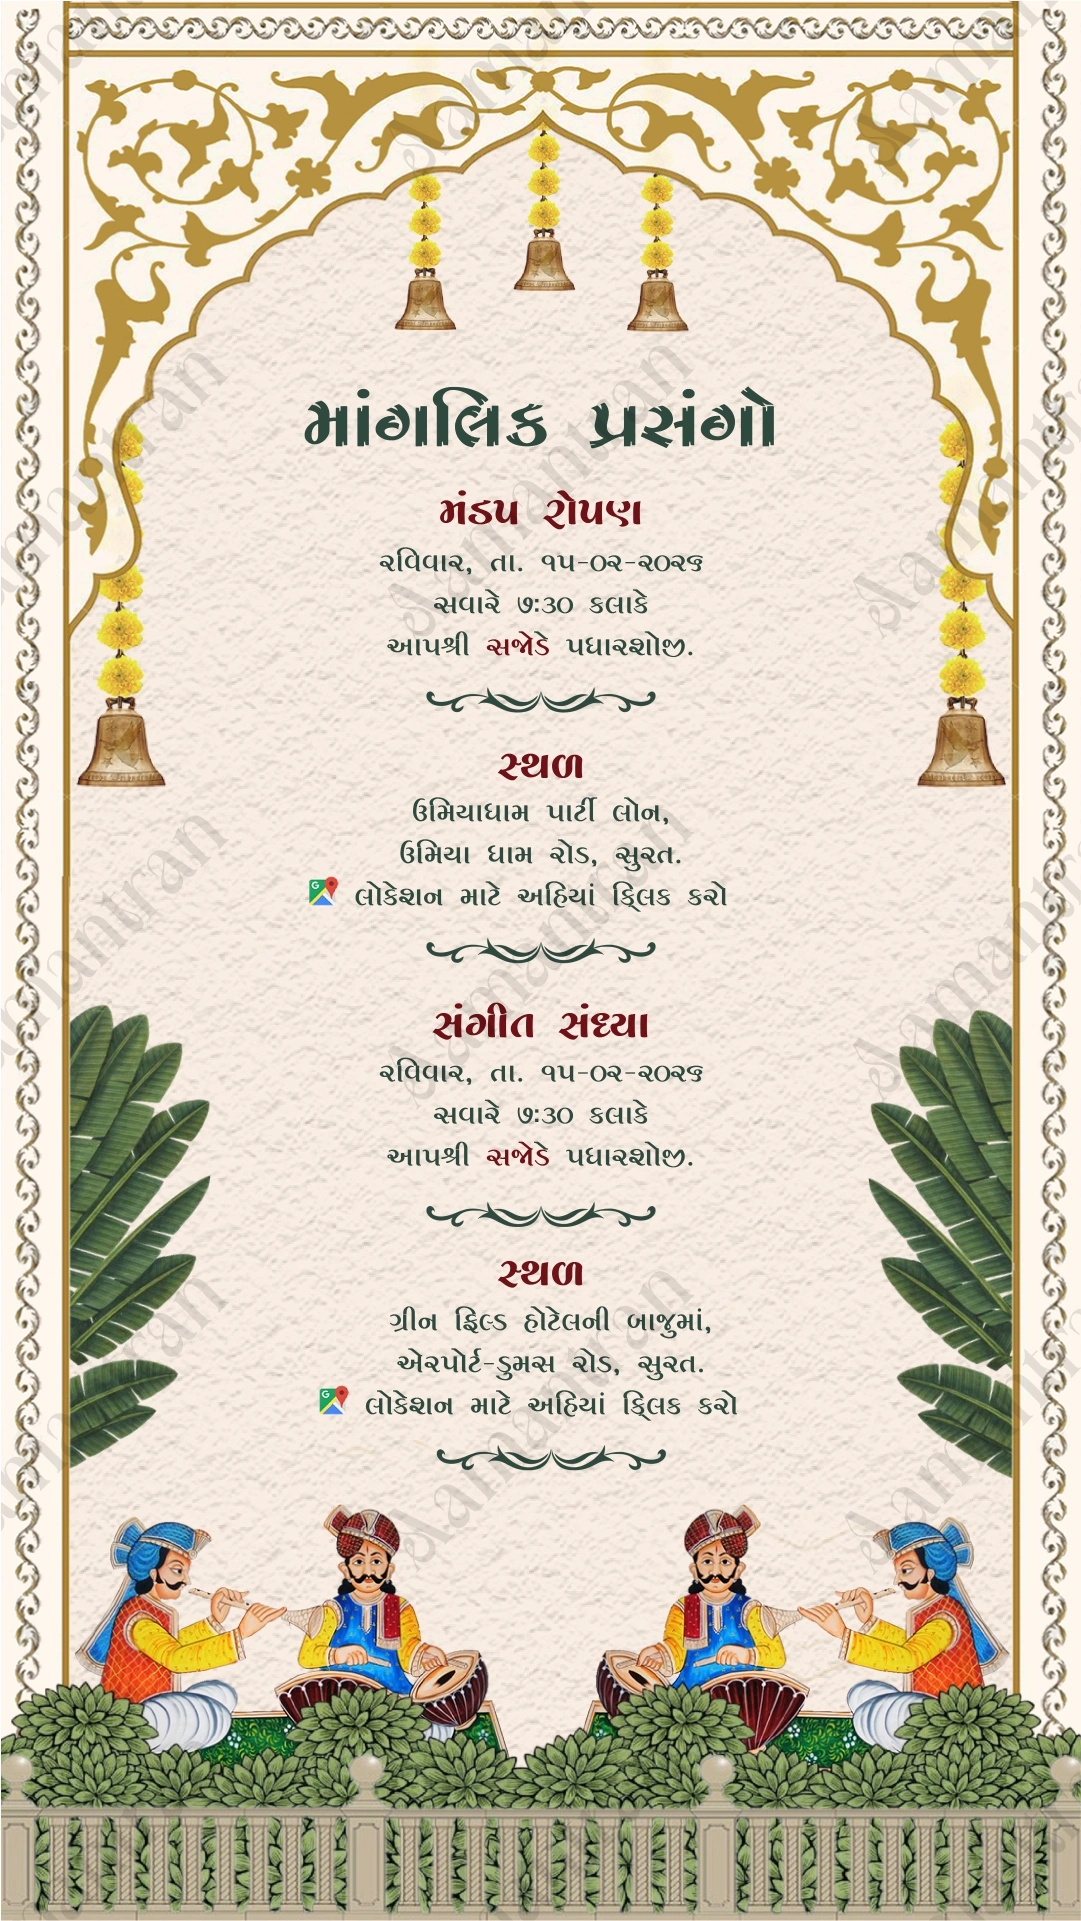 માંગલિક પ્રસંગો
મંડપ રોપણ
રવિવાર, તા. ૧૫-૦૨-૨૦૨૬
સવારે ૭:૩૦ કલાકે
આપશ્રી સજોડે પધારશોજી.
સ્થળ
ઉમિયાધામ પાર્ટી લોન,
ઉમિયા ધામ રોડ, સુરત.
લોકેશન માટે અહિયાં ક્લિક કરો
સંગીત સંધ્યા
રવિવાર, તા. ૧૫-૦૨-૨૦૨૬
સવારે ૭:૩૦ કલાકે
આપશ્રી સજોડે પધારશોજી.
સ્થળ
ગ્રીન ફિલ્ડ હોટેલની બાજુમાં,
એરપોર્ટ-ડુમસ રોડ, સુરત.
લોકેશન માટે અહિયાં ક્લિક કરો
Aamantran